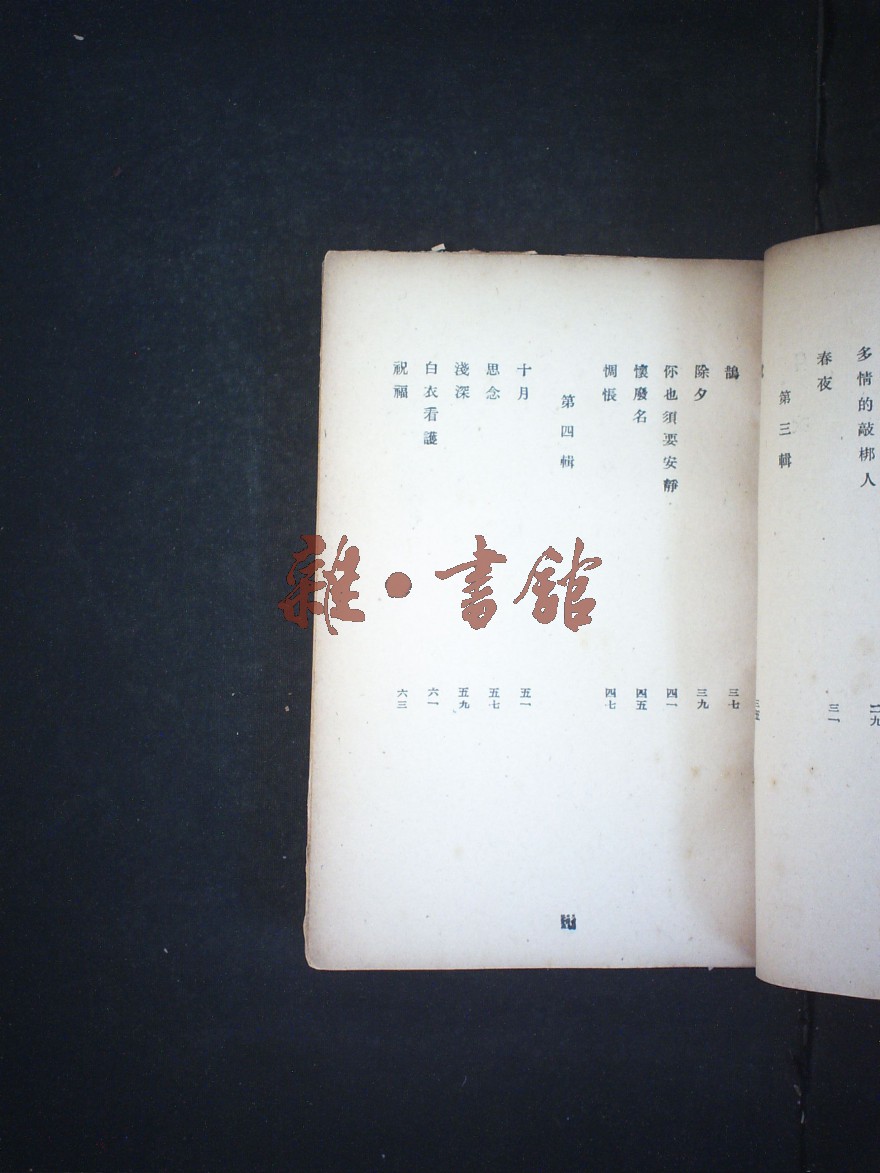 多情的敲梆人
二九
春夜
三一
第三輯
三五
鵲
三七
除夕
三九
你也須要安靜
四一
懷廢名
四五
惆悵
四七
第四輯
十月
五一
思念
五七
淺深
五九
白衣看護
六一
祝福
六三
雜·書館